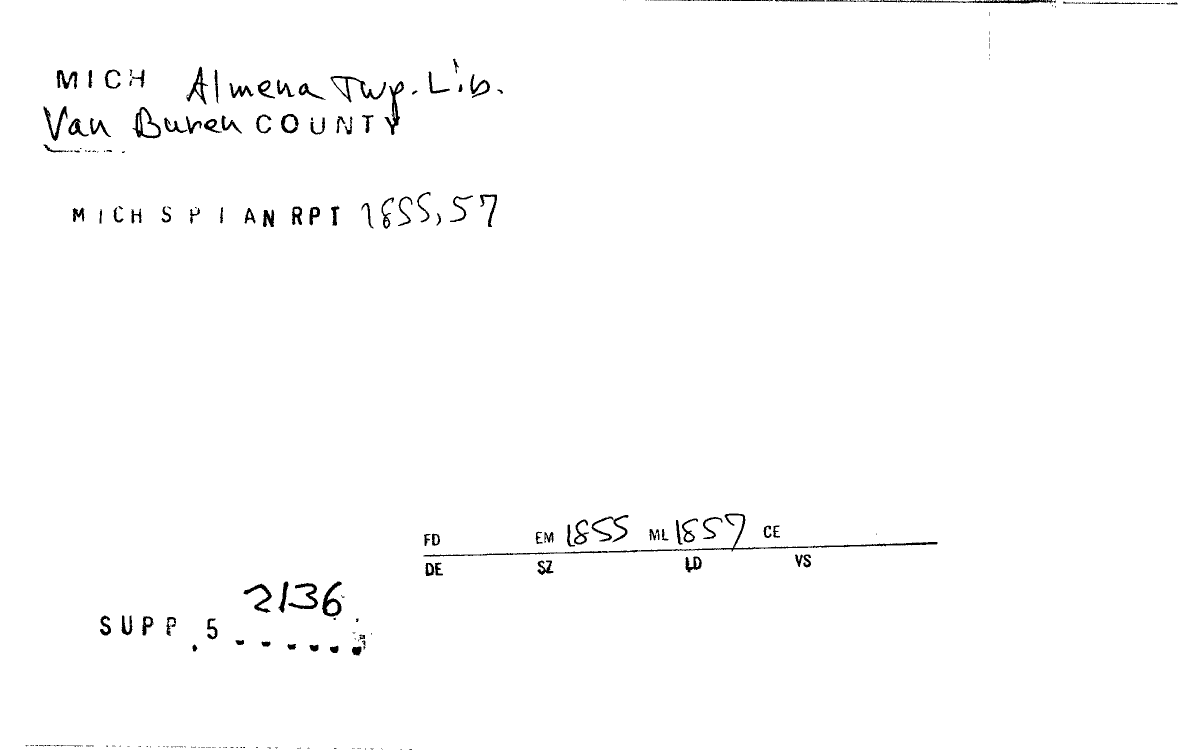 MICH Almena Twp. Lib.
Van Buren COUNTY
MICH SPI AN RPT 1855, 57
FD EM 1855 ML 1857 CE
DE SZ LD VS
2136
SUPP. 5 ......